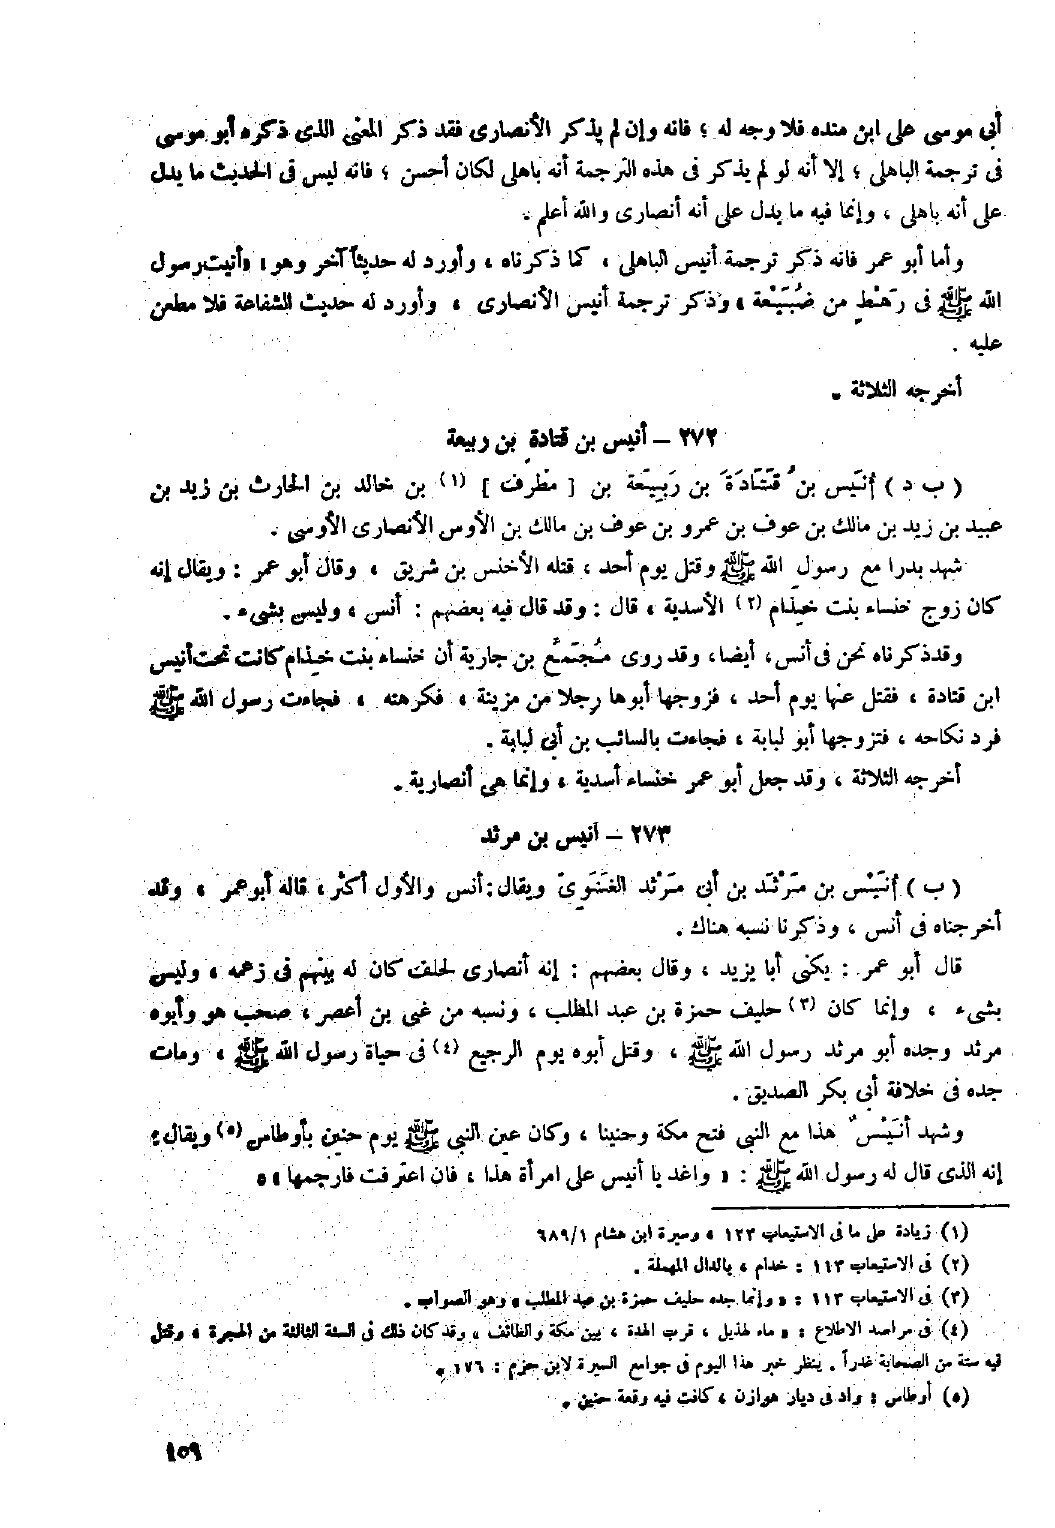 أبي موسى على ابن منده فلا وجه له ؛ فانه وإن لم يذكر الأنصارى فقد ذكر المعنى الذى ذكره أبو موسى
فى ترجمة الباهلى ؛ إلا أنه لو لم يذكر فى هذه الترجمة أنه باهلى لكان أحسن ؛ فانه ليس فى الحديث ما يدل
على أنه باهلى ، وإنما فيه ما يدل على أنه أنصارى والله أعلم .
وأما أبو عمر فانه ذكر ترجمة أنيس الباهلى ، كما ذكرناه ، وأورد له حديثاً آخر وهو : «أتيت رسول
الله ﷺ فى رَهْطٍ من ضُبَيْعة » وذكر ترجمة أنيس الأنصارى ، وأورد له حديث الشفاعة فلا مطعن
عليه .
أخرجه الثلاثة .
٢٧٢ – أنيس بن قتادة بن ربيعة
( ب د ) أُنَيس بنُ قَتَادَةَ بن رَبِيعَة بن [ مطرف ] (١) بن خالد بن الحارث بن زيد بن
عبيد بن زيد بن مالك بن عوف بن عمرو بن عوف بن مالك بن الأوس الأنصارى الأوسى .
شهد بدرا مع رسول الله ﷺ وقتل يوم أحد ، قتله الأخنس بن شريق ، وقال أبو عمر : ويقال إنه
كان زوج خنساء بنت خِذَام (٢) الأسدية ، قال : وقد قال فيه بعضهم : أنس ، وليس بشىء .
وقد ذكرناه نحن فى أنس ، أيضا ، وقد روى مُجَمِّعُ بن جارية أن خنساء بنت خِذَام كانت تحت أنيس
ابن قتادة ، فقتل عنها يوم أحد ، فزوجها أبوها رجلا من مزينة ، فكرهته ، فجاءت رسول الله ﷺ
فرد نكاحه ، فتزوجها أبو لبابة ، فجاءت بالسائب بن أبي لبابة .
أخرجه الثلاثة ، وقد جعل أبو عمر خنساء أسدية ، وإنما هى أنصارية .
٢٧٣ – أنيس بن مرثد
( ب ) أُنَيْس بن مَرْثَد بن أبى مَرْثد الغَنَوِىّ ويقال : أنس والأول أكثر ، قاله أبو عمر ، وقد
أخرجناه فى أنس ، وذكرنا نسبه هناك .
قال أبو عمر : يكنى أبا يزيد ، وقال بعضهم : إنه أنصارى لحلف كان له بينهم فى زعمه ، وليس
بشىء ، وإنما كان (٣) حليف حمزة بن عبد المطلب ، ونسبه من غنى بن أعصر ، صحب هو وأبوه
مرثد وجده أبو مرثد رسول الله ﷺ ، وقتل أبوه يوم الرجيع (٤) فى حياة رسول الله ﷺ ، ومات
جده فى خلافة أبى بكر الصديق .
وشهد أُنَيْسٌ هذا مع النبى فتح مكة وحنينا ، وكان عين النبى ﷺ يوم حنين بأوطاس (٥) ويقال :
إنه الذى قال له رسول الله ﷺ : « واغد يا أنيس على امرأة هذا ، فان اعترفت فارجمها » .
(١) زيادة على ما فى الاستيعاب ١٢٣ ، وسيرة ابن هشام ٦٨٩/١
(٢) فى الاستيعاب ١١٣ : خدام ، بالدال المهملة .
(٣) فى الاستيعاب ١١٣ : « وإنما جده حليف حمزة بن عبد المطلب » وهو الصواب .
(٤) فى مراصد الاطلاع : « ماء لهذيل ، قرب الهدة ، بين مكة والطائف ، وقد كان ذلك فى السنة الثالثة من الهجرة ، وقتل
فيه ستة من الصحابة غدراً . ينظر خبر هذا اليوم فى جوامع السيرة لابن حزم : ١٧٦ .
(٥) أوطاس : واد فى ديار هوازن ، كانت فيه وقعة حنين .
١٥٩